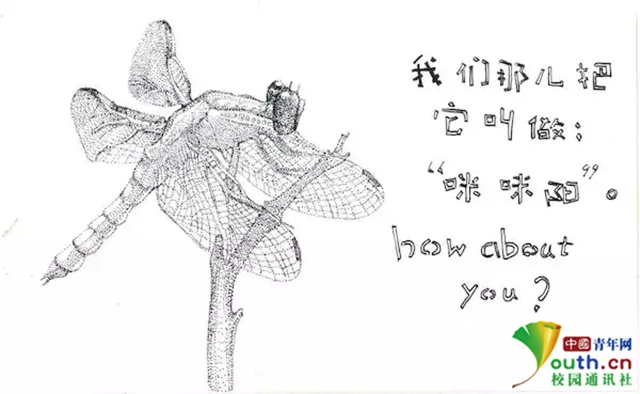 我们那儿把
它叫做：
“咪咪阳”。
how about
you?
中國青年网
Youth.cn
校园通讯社